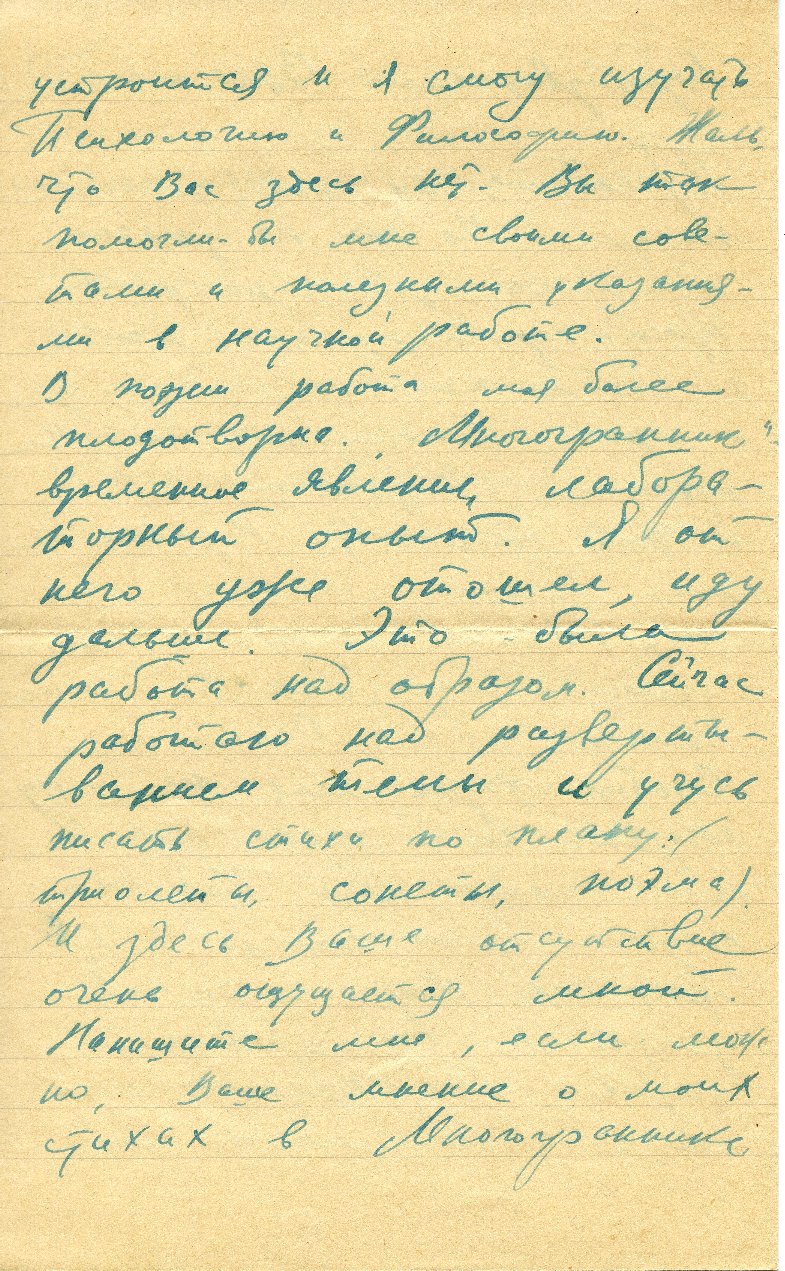 устроится и я смогу изучать
Психологию и Философию. Жаль,
что Вас здесь нет. Вы так
помогли-бы мне своими сове-
тами и полезными указания-
ми в научной работе.
В поэзии работа моя более
плодотворна. „Многогранник"-
временное явление, лабора-
торный опыт. Я от
него уже отошел, иду
дальше. Это - была
работа над образом. Сейчас
работаю над разверты-
ванием темы и учусь
писать стихи по плану. (
триолеты, сонеты, поэма).
И здесь Ваше отсутствие
очень ощущается мной.
Напишите мне, если мож-
но, Ваше мнение о моих
стихах в Многограннике,